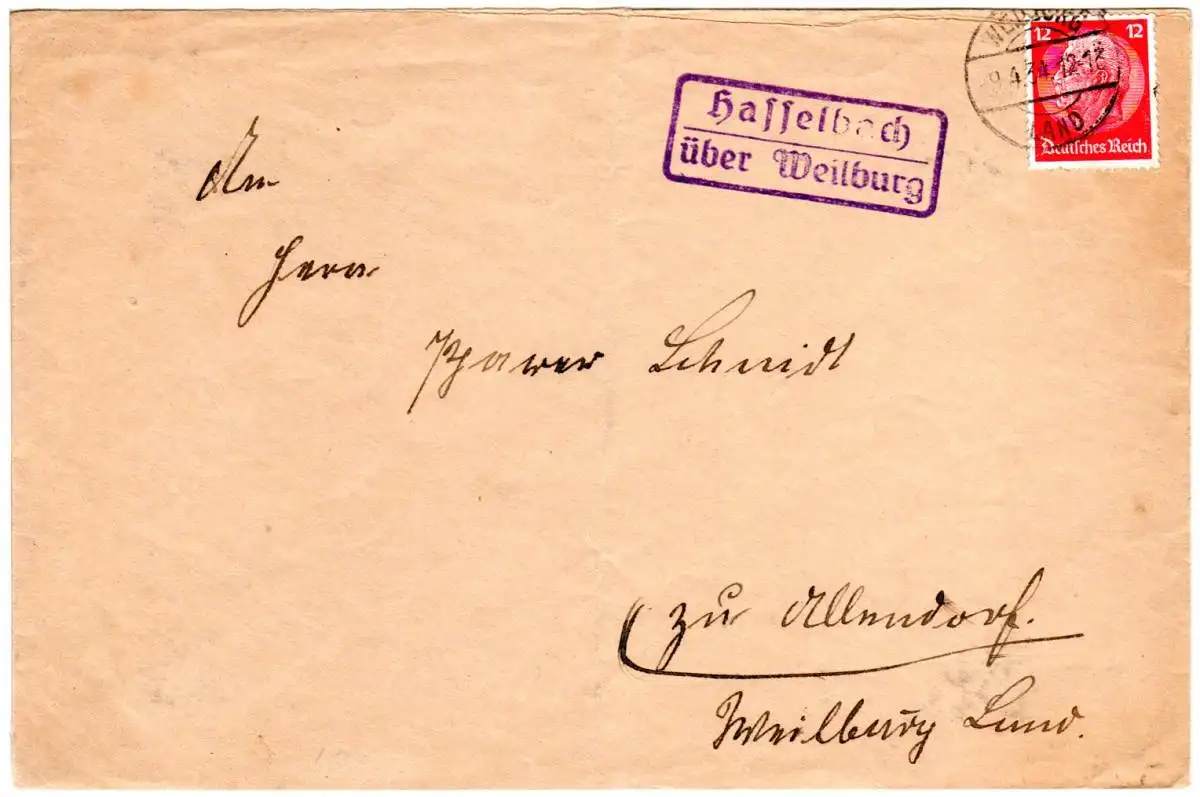 WEILBURG
12 12
9.4.34.12-13
LAND
Deutsches Reich
Hasselbach
über Weilburg
An
Herrn
Pfarrer Schmidt
zu Allendorf.
Weilburg Land.